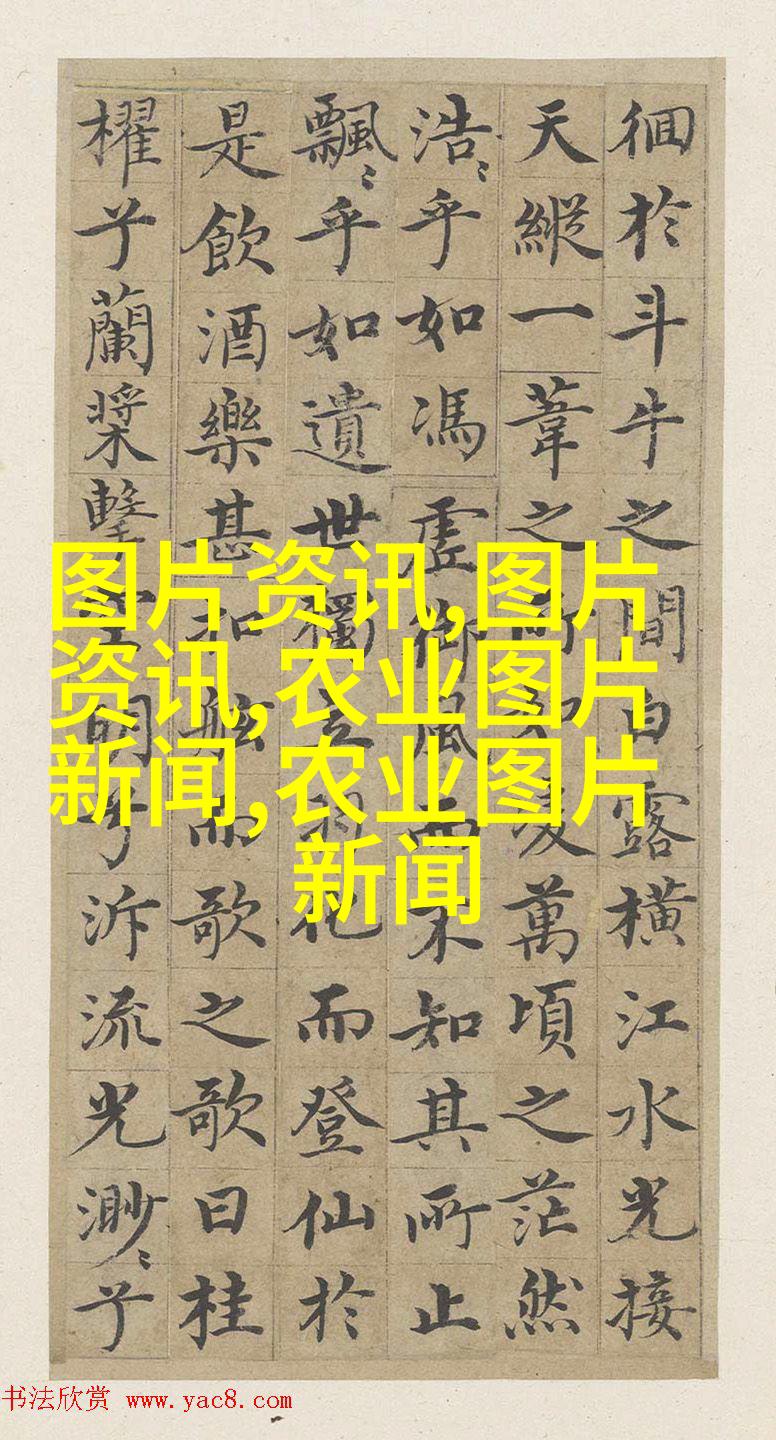 徊於斗牛之間白露橫江水光接
天縱一葦之所如凌萬頃之茫然
浩〻乎如馮虛御風而不知其所止
飄〻乎如遺世獨立羽化而登仙於
是飲酒樂甚扣舷而歌之歌曰桂
櫂兮蘭槳擊空明兮泝流光渺〻兮
图片资讯,图片
资讯,农业图片
新闻,农业图片
新闻
书法欣赏 www.yac8.com